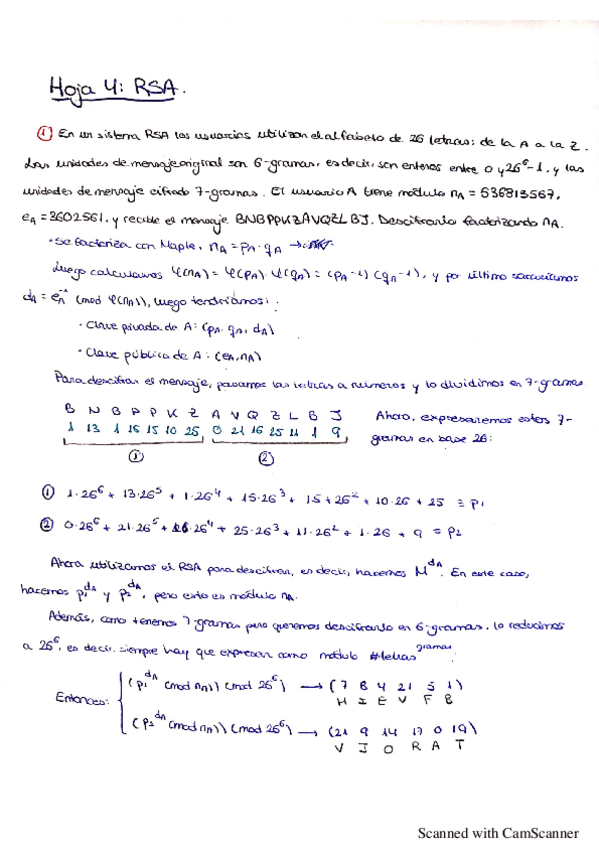 Hoja 4: RSA.
① En un sistema RSA los usuarios utilizan el alfabeto de 26 letras: de la A a la Z.
Las unidades de mensaje original son 6-gramas, es decir, son enteros entre 0 y 26⁶-1, y las
unidades de mensaje cifrado 7-gramas. El usuario A tiene módulo n_A = 636813567,
e_A = 3602561, y recibe el mensaje BNBPPKZAVQZLBJ. Descifrarlo factorizando n_A.
· Se factoriza con Maple, n_A = p_A · q_A →
Luego calculamos φ(n_A) = φ(p_A) · φ(q_A) = (p_A - 1) (q_A - 1), y por último
d_A = e_A⁻¹ (mod φ(n_A)), luego tendríamos:
· Clave privada de A: (p_A, q_A, d_A)
· Clave pública de A: (e_A, n_A)
Para descifrar el mensaje, pasamos las letras a números y lo dividimos en 7-gramas
B N B P P K Z A V Q Z L B J Ahora, expresaremos estos 7-
1 13 1 15 15 10 25, 0 21 16 25 11 1 9, gramas en base 26:
① ②
① 1·26⁶ + 13·26⁵ + 1·26⁴ + 15·26³ + 15+26² + 10·26 + 25 ≡ p₁
② 0·26⁶ + 21·26⁵ + 16·26⁴ + 25·26³ + 11·26² + 1·26 + 9 = p₂
Ahora utilizamos el RSA para descifrar, es decir, hacemos M^d_A. En este caso,
hacemos p₁^d_A y p₂^d_A, pero esto es módulo n_A.
Además, como tenemos 7-gramas pero queremos descifrarlo en 6-gramas, lo reducimos
a 26⁶, es decir, siempre hay que expresar como módulo #letras^gramas.
(p₁^d_A (mod n_A)) (mod 26⁶) → (7 8 4 21 5 1)
Entonces: H I E V F B
(p₂^d_A (mod n_A)) (mod 26⁶) → (21 9 14 17 0 19)
V J O R A T
Scanned with CamScanner